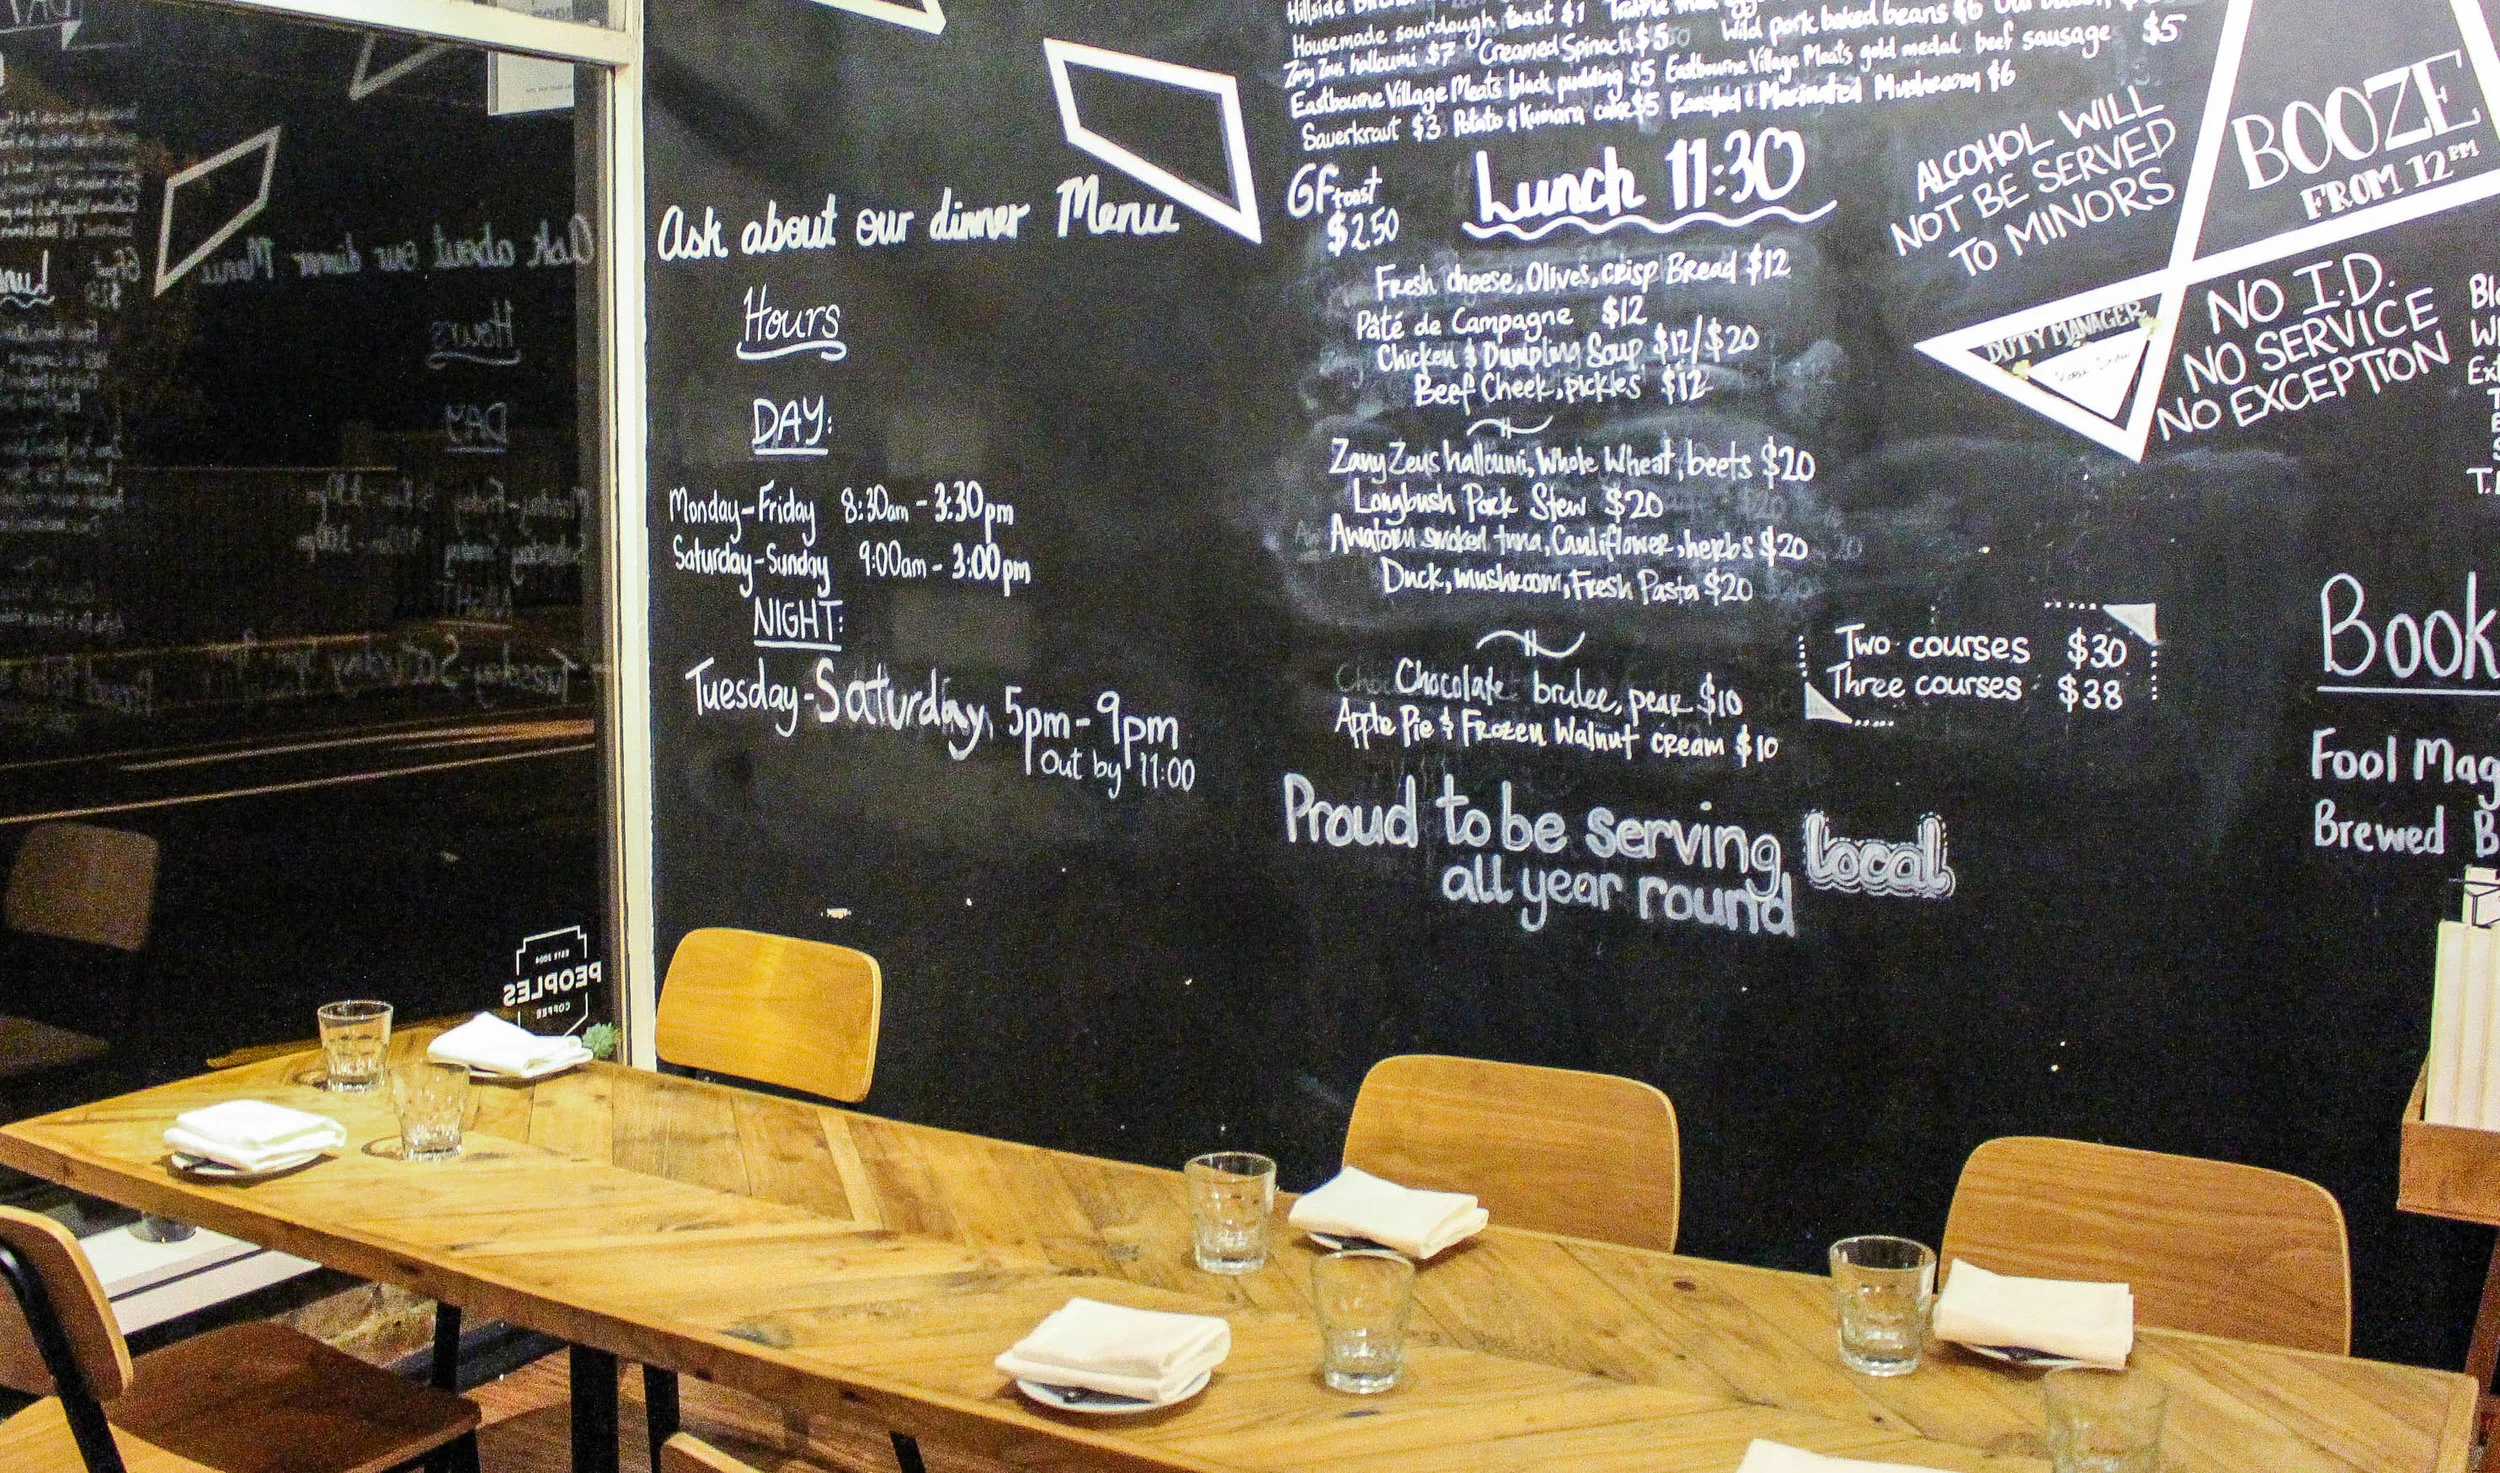 Ask about our dinner Menu
Hours
DAY:
Monday-Friday 8:30am - 3:30pm
Saturday-Sunday 9:00am - 3:00pm
NIGHT:
Tuesday-Saturday 5pm-9pm
Out by 11:00
Hillside
Housemade sourdough toast $1
Wild pork baked beans $6
Zany Zeus halloumi $7 Creamed Spinach $5
Eastbourne Village Meats black pudding $5 Eastbourne Village Meats gold medal beef sausage $5
Sauerkraut $3 Potato & Kumara cake $5 Roasted & Marinated Mushroom $6
GF toast
$2.50
Lunch 11:30
Fresh cheese, Olives, crisp Bread $12
Pâté de Campagne $12
Chicken & Dumpling Soup $12/$20
Beef Cheek, pickles $12
Zany Zeus halloumi, Whole Wheat, beets $20
Longbush Pork Stew $20
smoked tuna, Cauliflower, herbs $20
Duck, mushroom, Fresh Pasta $20
Chocolate brulee, pear $10
Apple Pie & Frozen Walnut cream $10
Two courses $30
Three courses $38
Proud to be serving Local
all year round
ALCOHOL WILL
NOT BE SERVED
TO MINORS
BOOZE
FROM 12PM
DUTY MANAGER
NO I.D.
NO SERVICE
NO EXCEPTION
Book
Fool Mag
Brewed B
ESTD 2004
PEOPLES
COFFEE